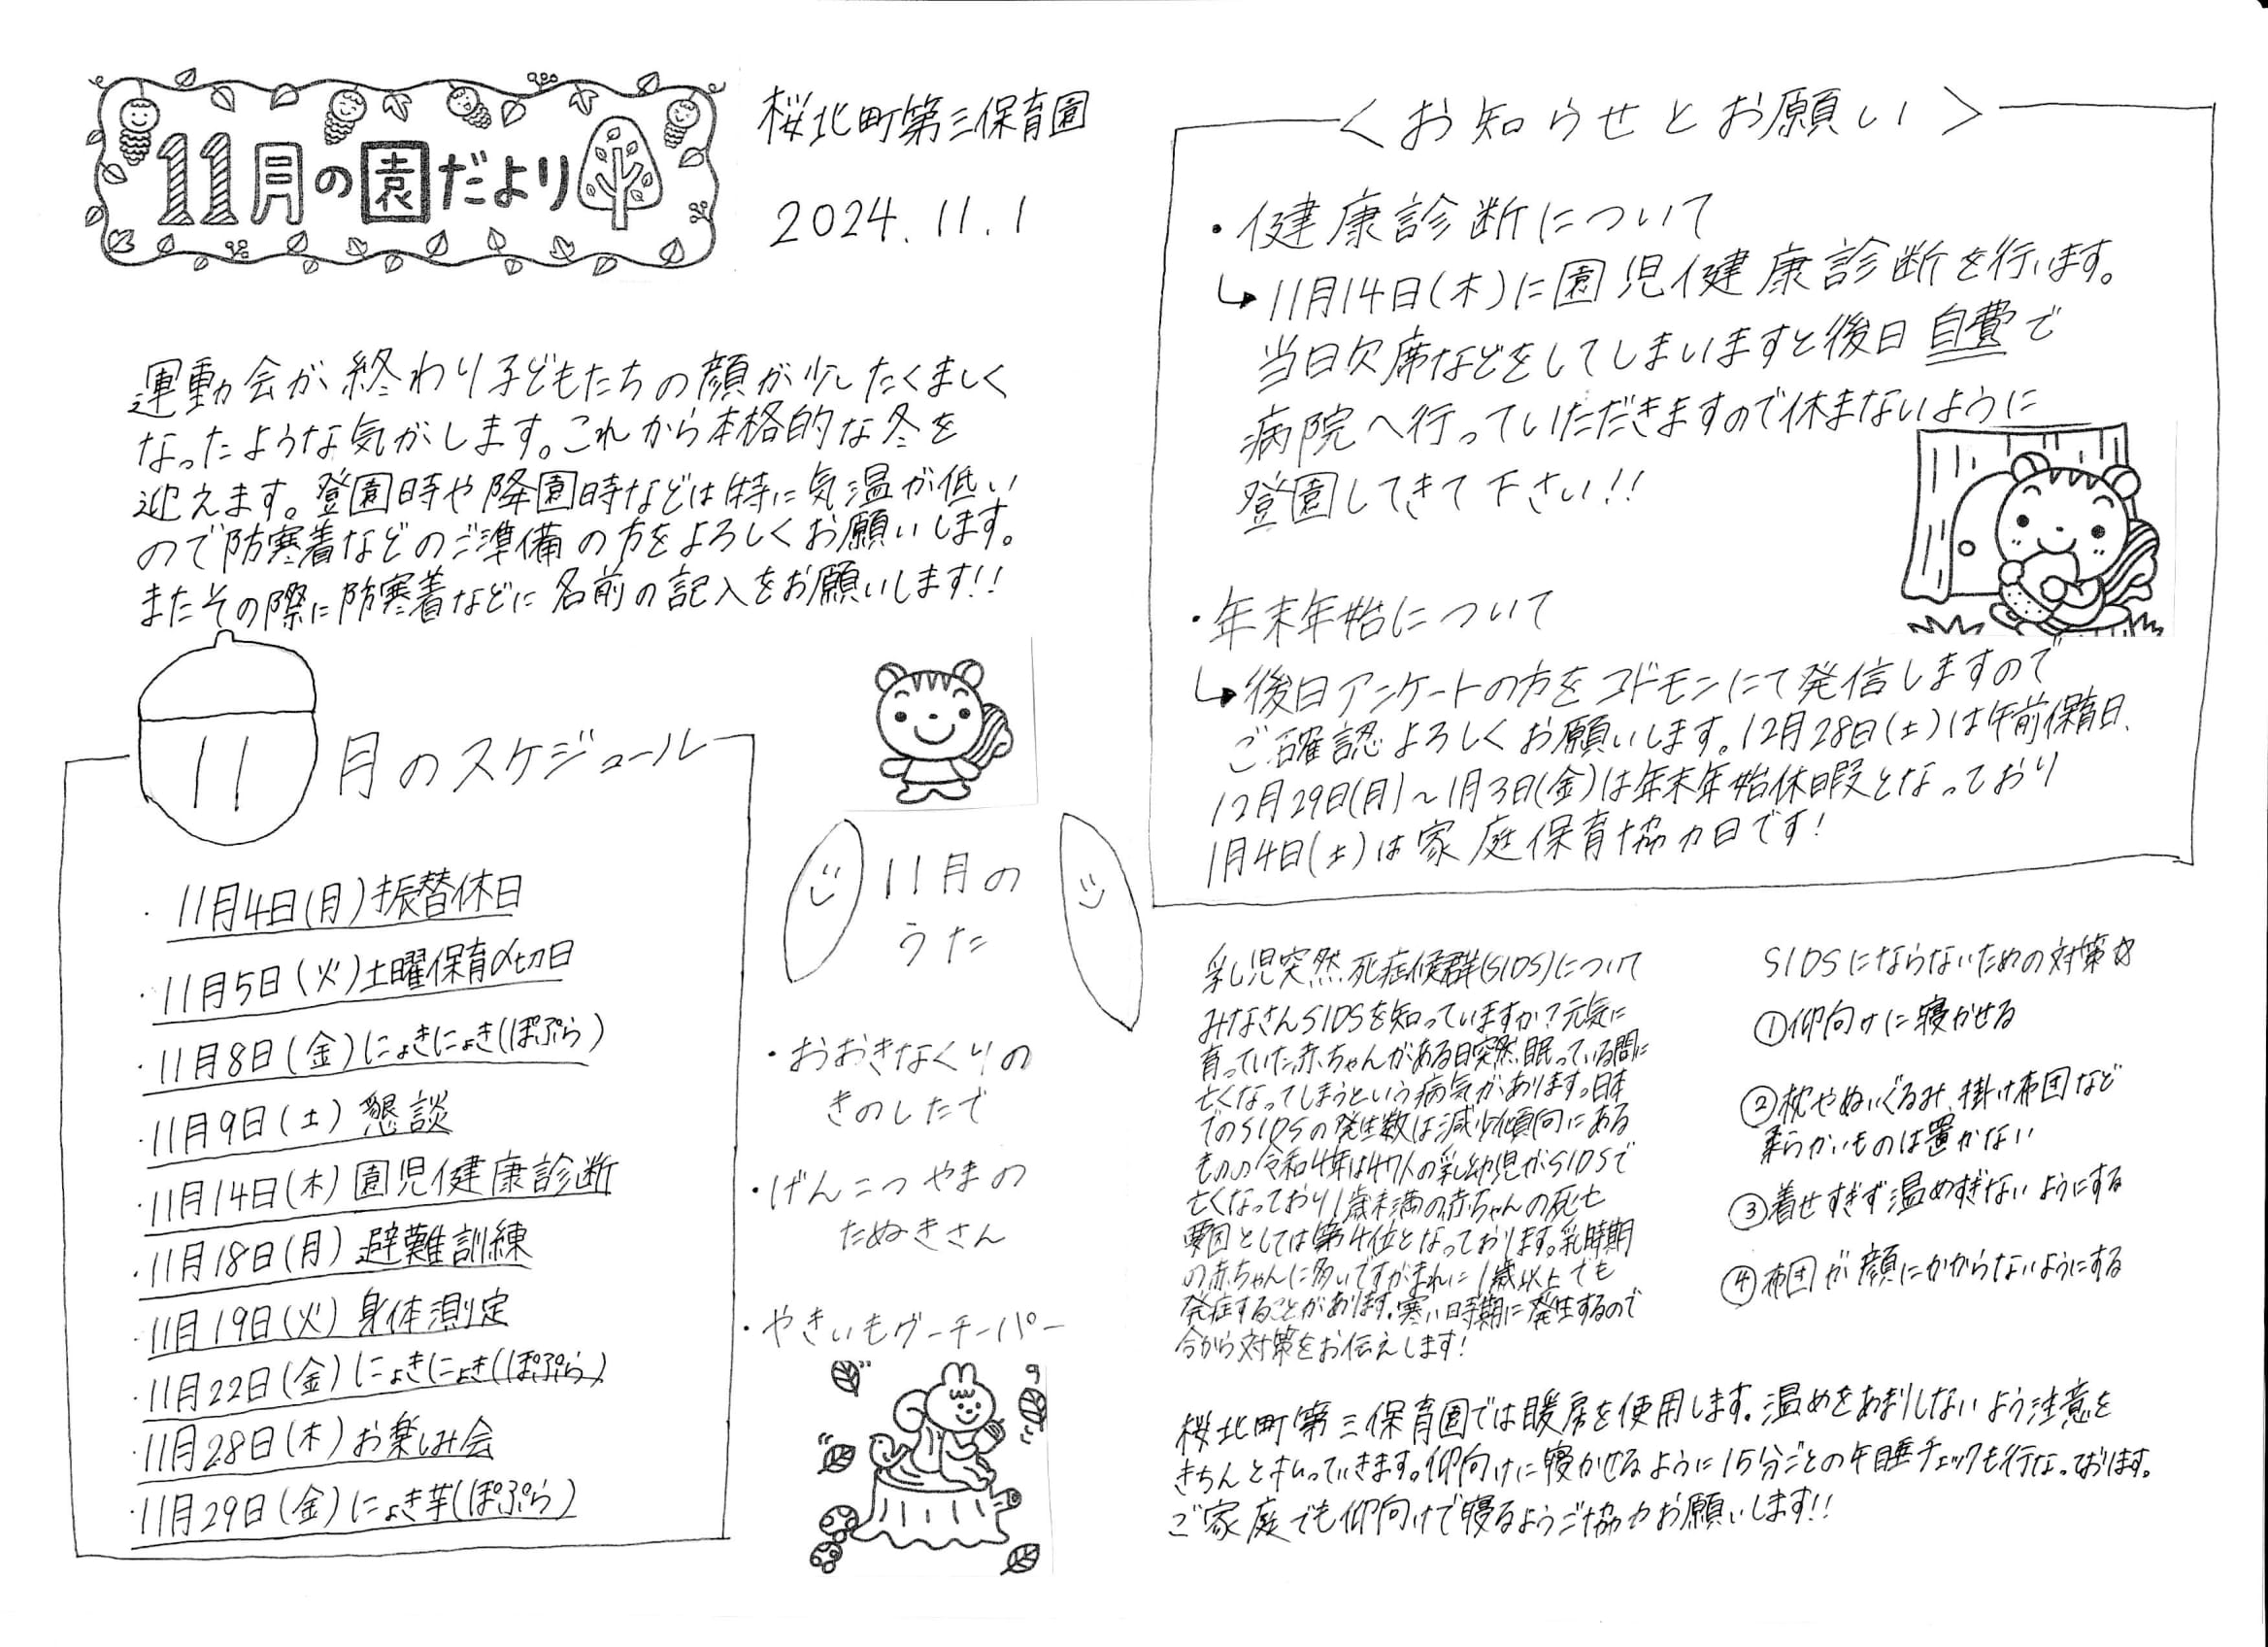 11月の園だより
桜北町第三保育園
2024.11.1
運動会が終わり子どもたちの顔が少したくましく
なったような気がします。これから本格的な冬を
迎えます。登園時や降園時などは特に気温が低い
ので防寒着などのご準備の方をよろしくお願いします。
またその際に防寒着などに名前の記入をお願いします!!
11月のスケジュール
・11月4日(月)振替休日
・11月5日(火)土曜保育〆切日
・11月8日(金)にょきにょき(ぽぷら)
・11月9日(土)懇談
・11月14日(木)園児健康診断
・11月18日(月)避難訓練
・11月19日(火)身体測定
・11月22日(金)にょきにょき(ぽぷら)
・11月28日(木)お楽しみ会
・11月29日(金)にょき芋(ぽぷら)
11月の
うた
・おおきなくりの
きのしたで
・げんこつやまの
たぬきさん
・やきいもグーチーパー
<お知らせとお願い>
・健康診断について
↳11月14日(木)に園児健康診断を行います。
当日欠席などをしてしまいますと後日自費で
病院へ行っていただきますので休まないように
登園してきて下さい!!
・年末年始について
↳後日アンケートの方をコドモンにて発信しますので
ご確認よろしくお願いします。12月28日(土)は午前保育日、
12月29日(月)~1月3日(金)は年末年始休暇となっており
1月4日(土)は家庭保育協力日です!
乳児突然死症候群(SIDS)について
みなさんSIDSを知っていますか?元気に
育っていた赤ちゃんがある日突然眠っている間に
亡くなってしまうという病気があります。日本
でのSIDSの発生数は減少傾向にある
ものの令和4年は47人の乳幼児がSIDSで
亡くなっており1歳未満の赤ちゃんの死亡
要因としては第4位となっております。乳時期
の赤ちゃんに多いですがまれに1歳以上でも
発症することがあります。寒い時期に発生するので
今から対策をお伝えします!
SIDSにならないための対策☆
①仰向けに寝かせる
②枕やぬいぐるみ、掛け布団など
柔らかいものは置かない
③着せすぎず温めすぎないようにする
④布団が顔にかからないようにする
桜北町第三保育園では暖房を使用します。温めをあまりしないよう注意を
きちんと払っていきます。仰向けに寝かせるように15分ごとの午睡チェックも行なっております。
ご家庭でも仰向けで寝るようご協力お願いします!!